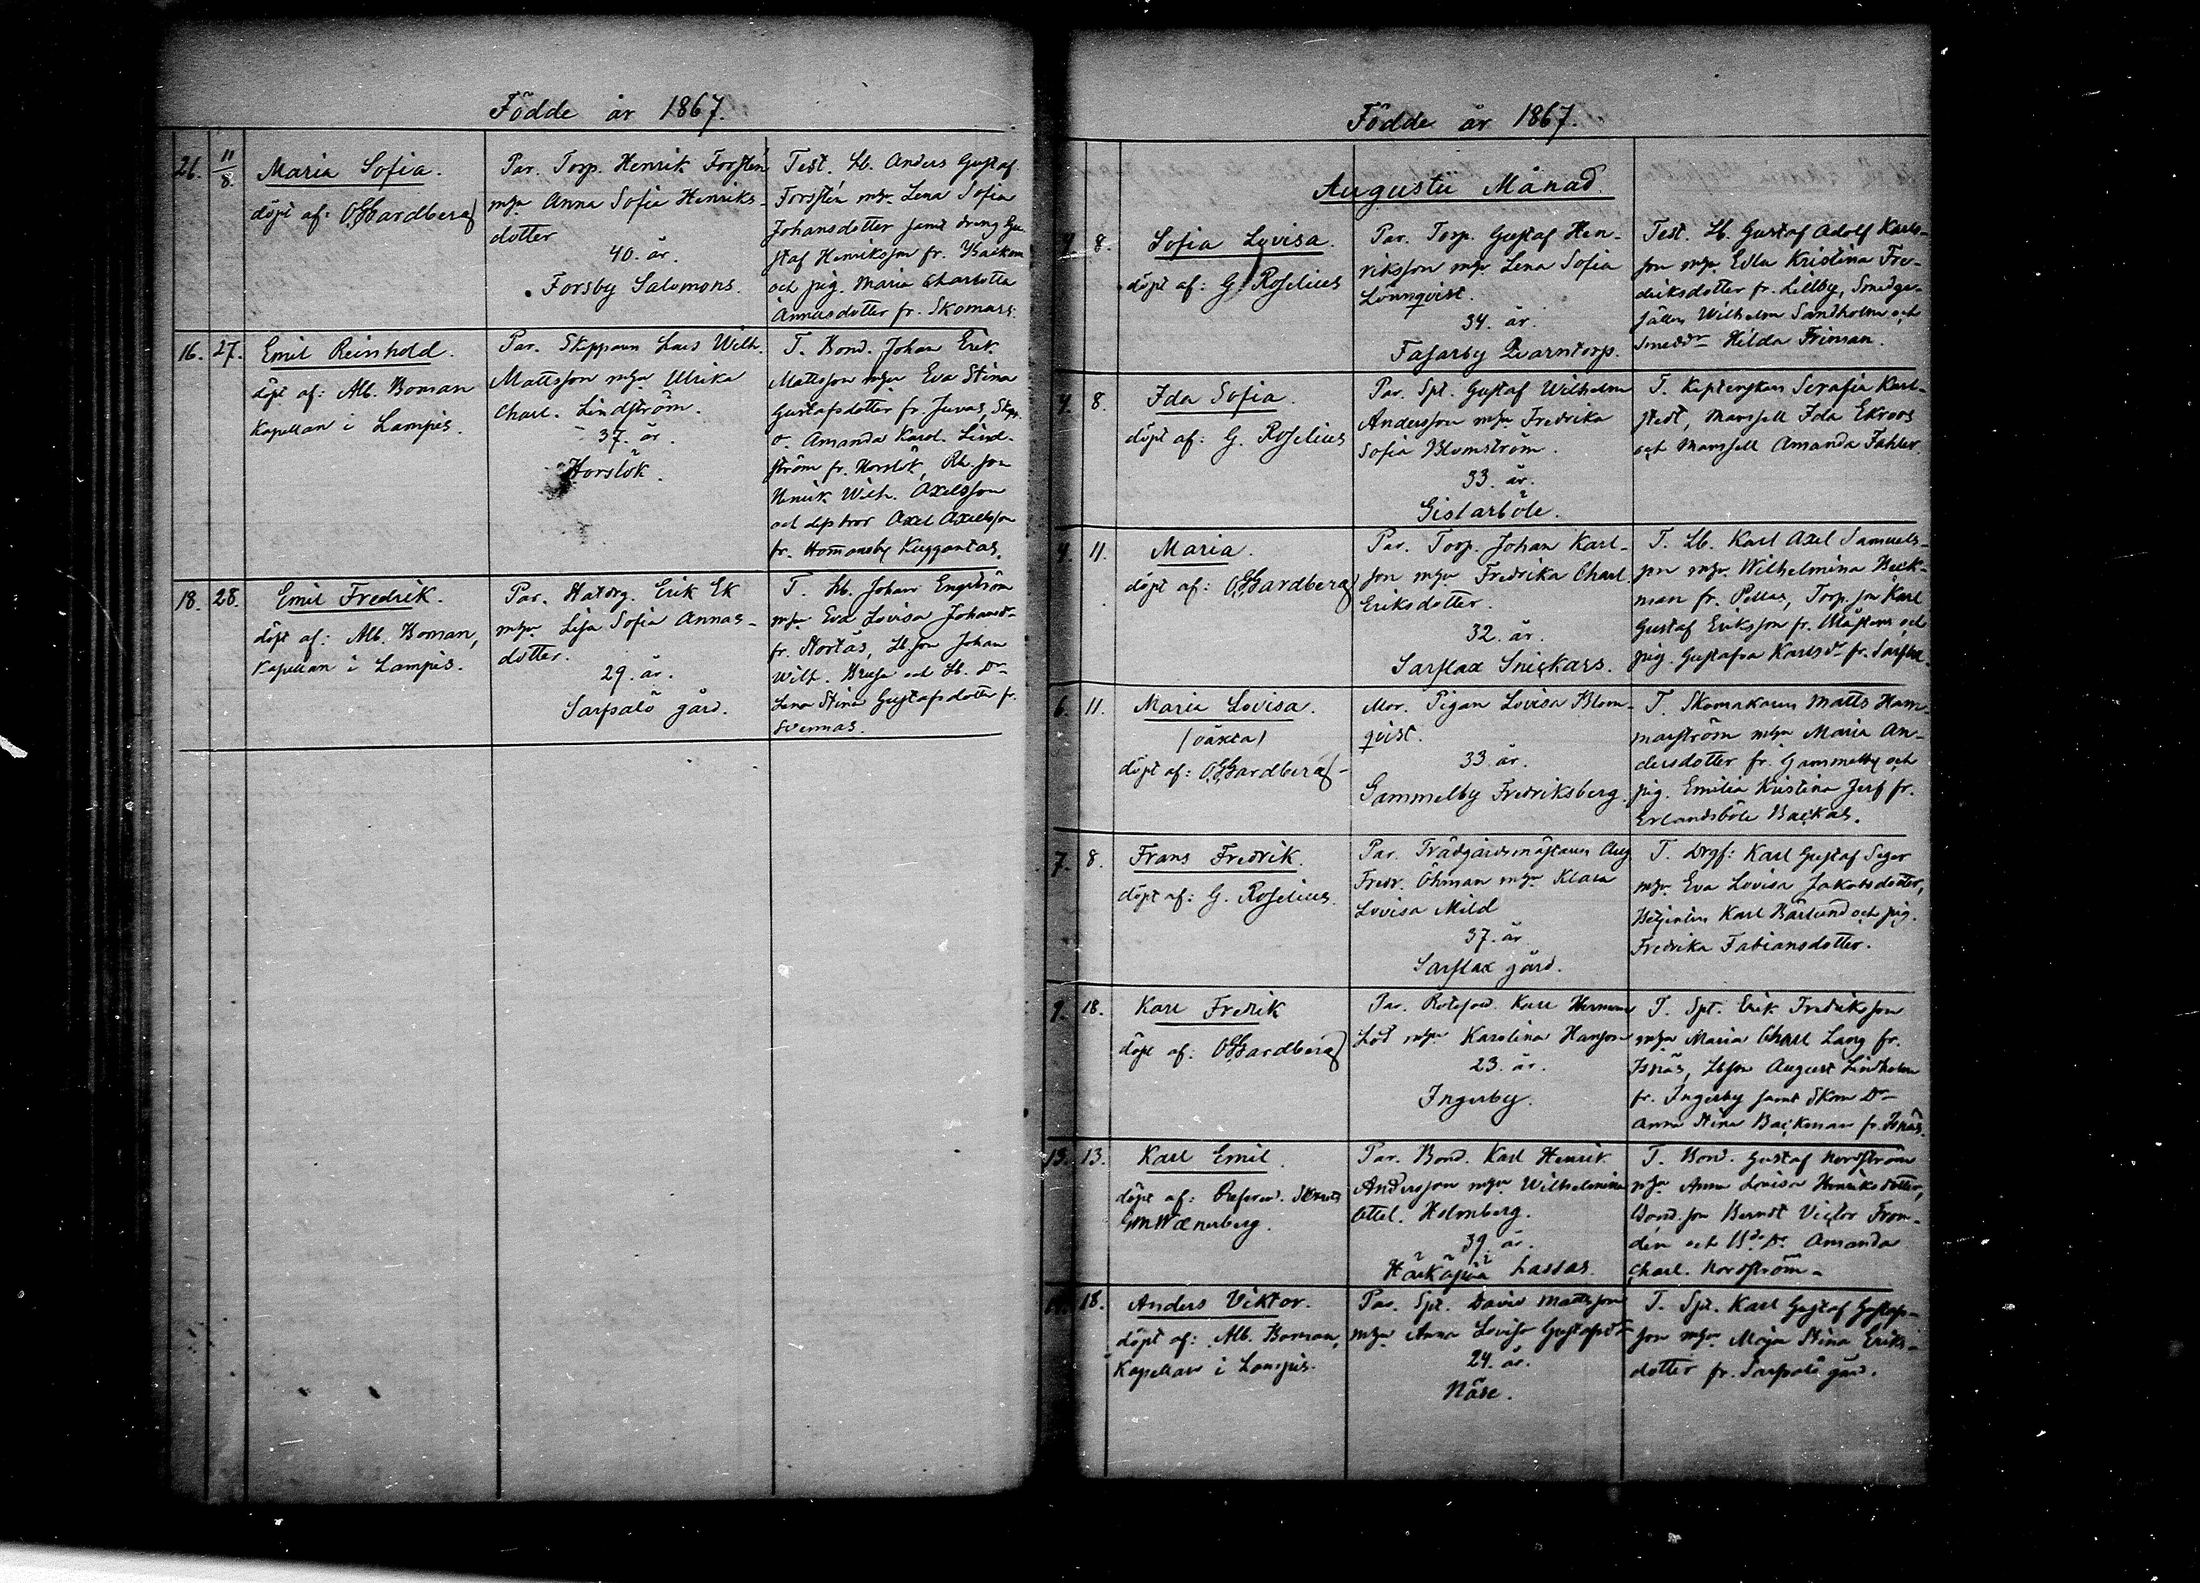 Födde år 1867.
21. 11/8. Maria Sofia.
döpt af: O Hardberg
Par. Torp. Henrik Forstén
m hu Anna Sofia Henriks-
dotter
40. år.
Forsby Salomons.
Test. Lb. Anders Gustaf
Forstén m hu Lena Sofia
Johansdotter samt dreng Gu-
staf Henriksson fr. Backom
och pig. Maria Charlotta
Annasdotter fr. Skomars.
16. 27. Emil Reinhold.
döpt af: Alb. Boman
Kapellan i Lampis.
Par. Skepparen Lars Wilh.
Mattsson m hu Ulrika
Charl. Lindström.
37. år.
Horslök.
T. Bond. Johan Erik
Mattsson m hu Eva Stina
Gustafsdotter fr. Juvas, Skepp.
Amanda Karol. Lind-
ström fr. Horslök,
Henrik Wilh. Axelsson
och Axel Axelsson
fr. Hommansby Kuggontas.
18. 28. Emil Fredrik.
döpt af: Alb. Boman,
Kapellan i Lampis.
Par. Erik Ek
m hu Lisa Sofia Annas-
dotter.
29. år.
Sarfsalö gård.
T. Lb. Johan Engström
m hu Eva Lovisa Johansdr
fr. Norrlås, Lb son Johan
Wilh. och Lb. Dr
Lena Stina Gustafsdotter fr.
Svennas.
Födde år 1867.
Augusti Månad.
4. 8. Sofia Lovisa.
döpt af: G Roselius
Par. Torp. Gustaf Hen-
riksson m hu Lena Sofia
Lönnqvist.
34. år.
Fasarby Qvarntorp.
Test. Lb. Gustaf Adolf Karls-
son m hu Edla Kristina Fre-
driksdotter fr. Lillby, Smedge-
sällen Wilhelm Sandholm och
Smeddr Hilda Friman.
4. 8. Ida Sofia.
döpt af: G. Roselius
Par. Spt. Gustaf Wilhelm
Andersson m hu Fredrika
Sofia Blomström.
33. år.
Gislarböle.
T. Kaptenskan Serafia Karl-
stedt, Mamsell Ida Ekroos
och Mamsell Amanda Fahler.
4. 11. Maria.
döpt af: O Hardberg
Par. Torp. Johan Karl-
son m hu Fredrika Charl
Eriksdotter.
32. år.
Sarflax Snickars.
T. Lb. Karl Axel Samuels-
son m hu Wilhelmina Beck-
man fr. Pellas, Torp. son Karl
Gustaf Eriksson fr. Mästars och
pig. Gustafva Karlsdr fr. Sarflax.
6. 11. Maria Lovisa.
(oäkta)
döpt af: O Hardberg
Mor. Pigan Lovisa Blom-
qvist.
33 år.
Gammelby Fredriksberg.
T. Skomakaren Matts Ham-
marström m hu Maria An-
dersdotter fr. Gammelby och
pig. Emilia Kristina Jerf fr.
Erlandsböle Backas.
7. 8. Frans Fredrik.
döpt af: G. Roselius.
Par. Trädgårdsmästaren Aug
Fredr. Öhman m hu Klara
Lovisa Mild
37. år
Sarflax gård.
T. Drgf: Karl Gustaf Seger
m hu Eva Lovisa Jakobsdotter,
Betjenten Karl Bärlund och pig.
Fredrika Fabiansdotter.
9. 18. Karl Fredrik
döpt af: O Hardberg
Par. Rotesold. Karl Herman
Löf m hu Karolina Hansson
23. år.
Ingerby.
T. Spt. Erik Fredriksson
m hu Maria Charl Lang fr.
Isnäs, Lbson August Lindholm
fr. Ingerby samt Skom Dr
Anna Stina Backman fr. Isnäs.
13. 13. Karl Emil.
döpt af:
G M Wænerberg.
Par. Bond. Karl Henrik
Andersson m hu Wilhelmina
Ottel. Holmberg.
39. år.
Härkäpää Lassas
T. Bond. Gustaf Nordström
m hu Anna Lovisa Henriksdotter,
Bond. son Berndt Victor From-
dén och Bd. Dr Amanda
Charl. Nordström.
18. Anders Viktor.
döpt af: Alb. Boman,
Kapellan i Lampis.
Par. Spt. David Mattsson
m hu Anna Lovisa Gustafsdr
24. år.
Näse.
T. Spt. Karl Gustaf Gustafs-
son m hu Maja Stina Eriks-
dotter fr. Sarfsalö gård.